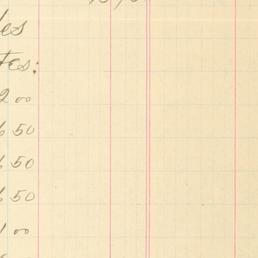 les
tes:
2 00
6 50
6 50
6 50
1 00